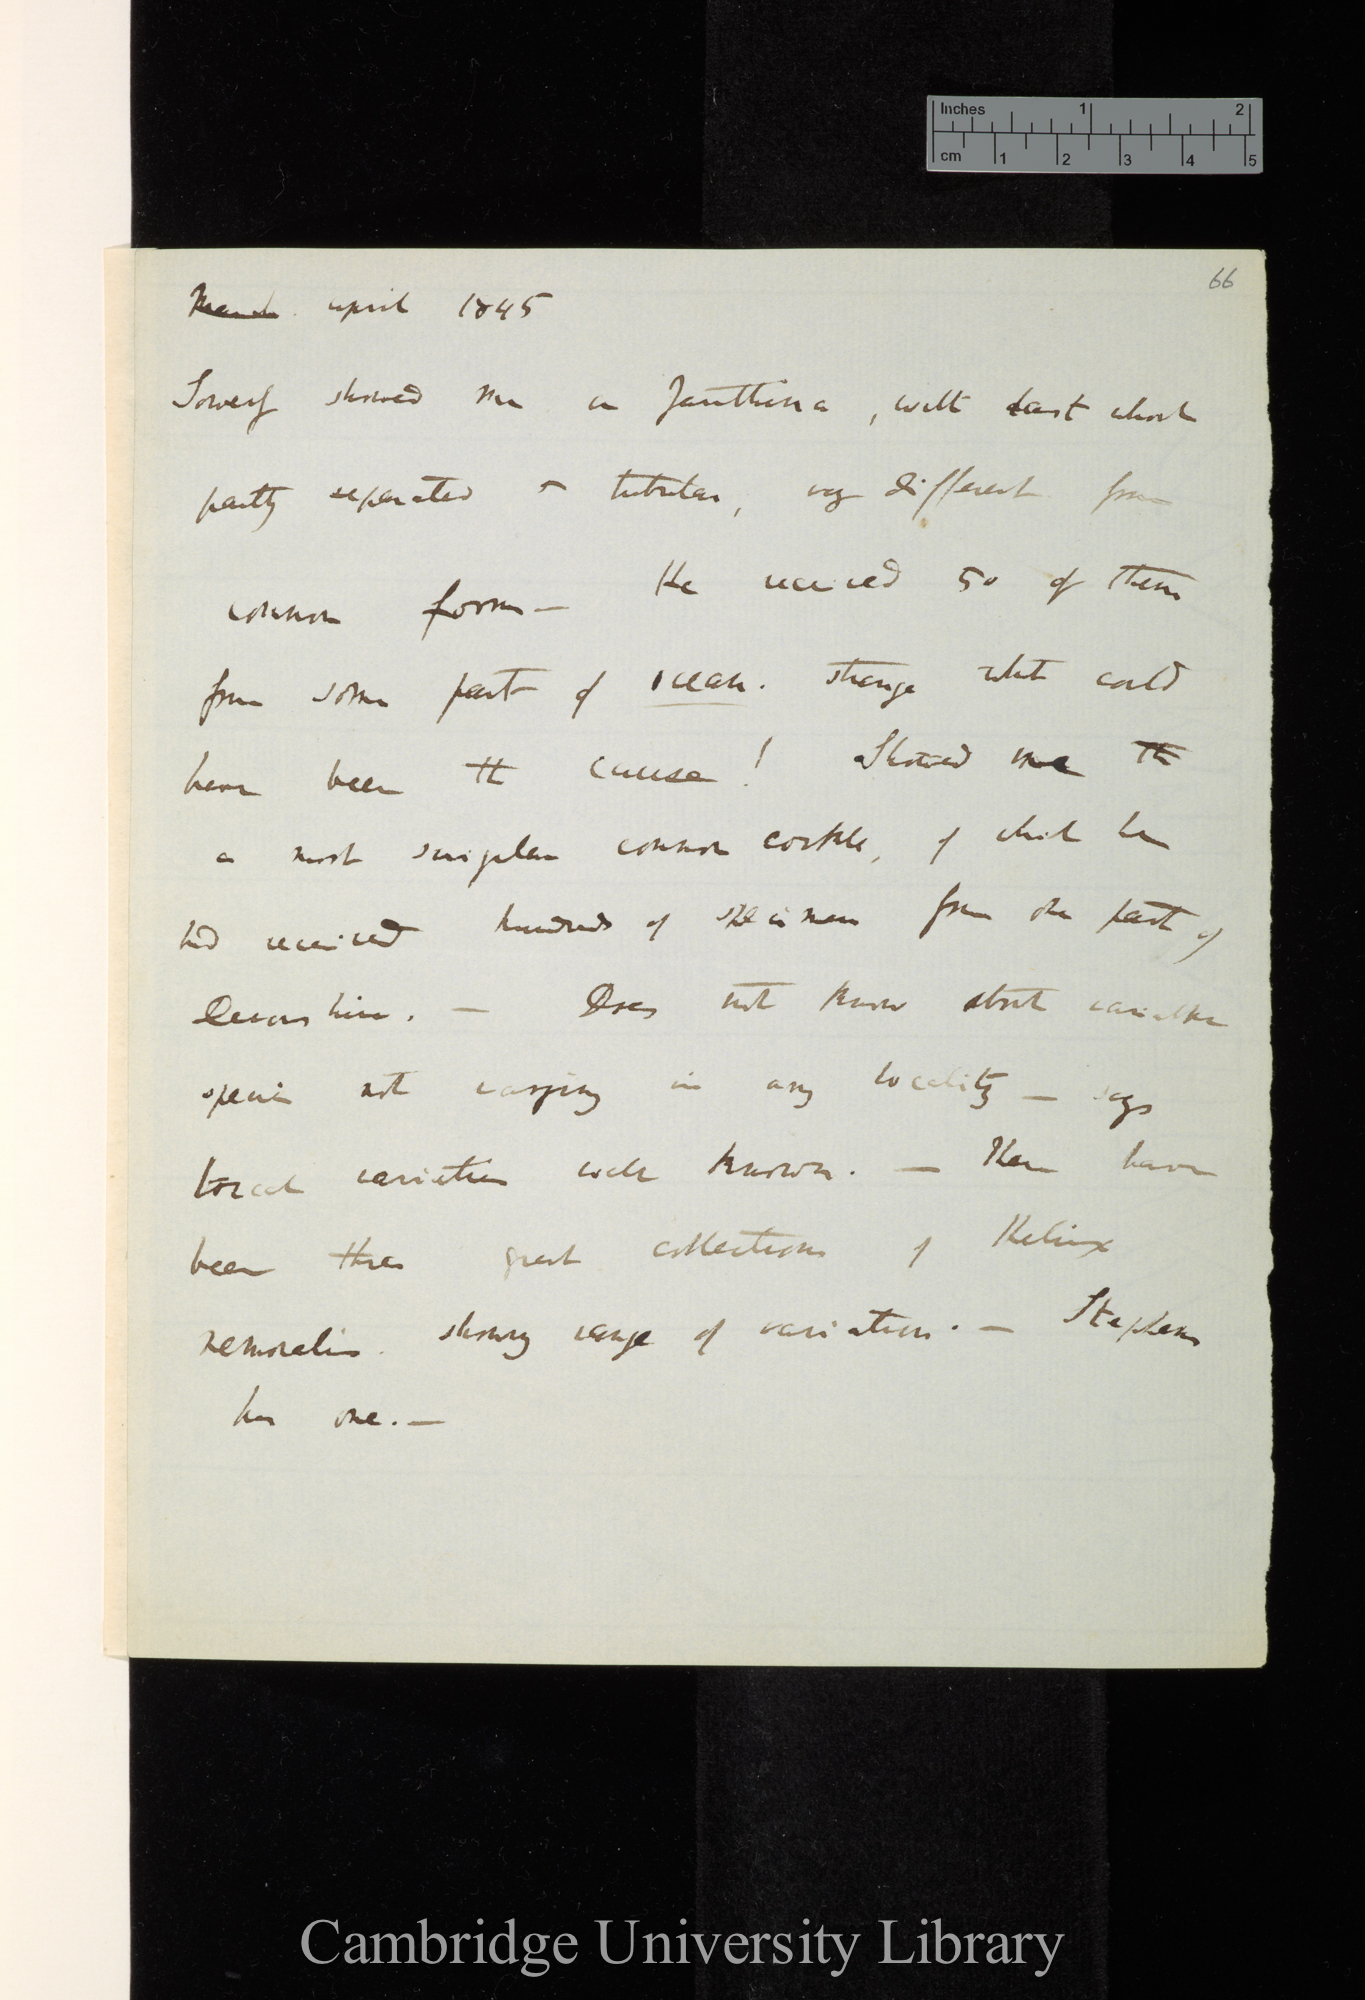 Inches 1 2
cm 1 2 3 4 5
66
March april 1845
Sowerby showed me a Janthina, with last whorl
partly separated & tubular, very different from
common form — He received 50 of them
from some part of ocean. strange what could
have been the cause! Showed me th
a most singular common cockle, of which he
had received hundreds of specimens from one part of
Devonshire. — Does not know about variable
species not varying in any locality — says
local variation well known. — There have
been three great collections of Helix
nemoralis. showing range of variation. — Stephens
has one. —
Cambridge University Library